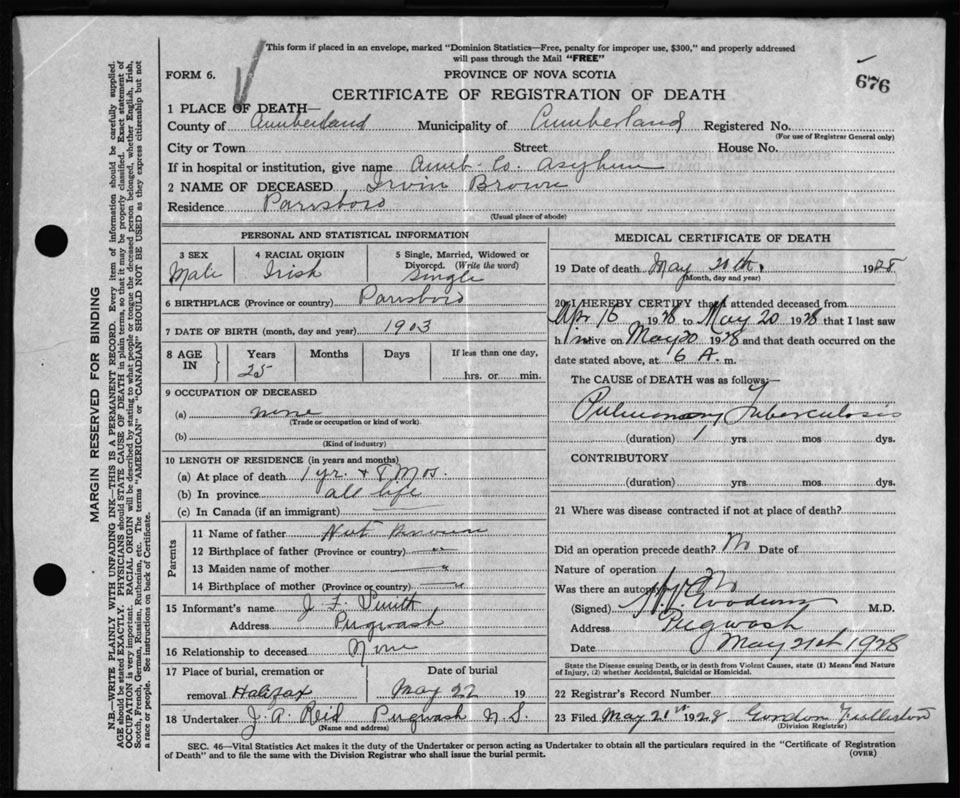 This form if placed in an envelope, marked "Dominion Statistics—Free, penalty for improper use, $300," and properly addressed
will pass through the Mail "FREE"
FORM 6.
PROVINCE OF NOVA SCOTIA
676
CERTIFICATE OF REGISTRATION OF DEATH
1 PLACE OF DEATH—
County of Cumberland Municipality of Cumberland Registered No.
(For use of Registrar General only)
City or Town Street House No.
If in hospital or institution, give name Cumb. Co. Asylum
2 NAME OF DECEASED Irvin Brown
Residence Parrsboro
(Usual place of abode)
PERSONAL AND STATISTICAL INFORMATION
3 SEX
Male
4 RACIAL ORIGIN
Irish
5 Single, Married, Widowed or
Divorced. (Write the word)
Single
6 BIRTHPLACE (Province or country) Parrsboro
7 DATE OF BIRTH (month, day and year) 1903
8 AGE IN
Years
25
Months
Days
If less than one day,
hrs. or min.
9 OCCUPATION OF DECEASED
(a) none
(Trade or occupation or kind of work)
(b)
(Kind of industry)
10 LENGTH OF RESIDENCE (in years and months)
(a) At place of death 1 yr. + 8 Mos.
(b) In province all life
(c) In Canada (if an immigrant)
Parents
11 Name of father Not known
12 Birthplace of father (Province or country) "
13 Maiden name of mother "
14 Birthplace of mother (Province or country) "
15 Informant's name J. F. Smith
Address Pugwash
16 Relationship to deceased None
17 Place of burial, cremation or
removal Halifax
Date of burial
May 22 19
18 Undertaker J. A. Reid Pugwash N. S.
(Name and address)
MEDICAL CERTIFICATE OF DEATH
19 Date of death May 20th. 1928
(Month, day and year)
20 I HEREBY CERTIFY that I attended deceased from
Apr 16 1928 to May 20 1928 that I last saw
him alive on May 20 1928 and that death occurred on the
date stated above, at 6 A. m.
The CAUSE of DEATH was as follows:—
Pulmonary Tuberculosis
(duration) 1 yrs. mos. dys.
CONTRIBUTORY
(duration) yrs. mos. dys.
21 Where was disease contracted if not at place of death?
Did an operation precede death? No Date of
Nature of operation
Was there an autopsy? No
(Signed) M.D.
Address Pugwash
Date May 21st 1928
State the Disease causing Death, or in death from Violent Causes, state (1) Means and Nature
of Injury, (2) whether Accidental, Suicidal or Homicidal.
22 Registrar's Record Number
23 Filed May 21st 1928 Gordon Fulleston
(Division Registrar)
SEC. 46—Vital Statistics Act makes it the duty of the Undertaker or person acting as Undertaker to obtain all the particulars required in the "Certificate of Registration
of Death" and to file the same with the Division Registrar who shall issue the burial permit.
(OVER)
MARGIN RESERVED FOR BINDING
N.B.—WRITE PLAINLY WITH UNFADING INK—THIS IS A PERMANENT RECORD. Every item of information should be carefully supplied.
AGE should be stated EXACTLY. PHYSICIANS should STATE CAUSE OF DEATH in plain terms, so that it may be properly classified. Exact statement of
OCCUPATION is very important. RACIAL ORIGIN will be described by stating to what people or tongue the deceased person belonged, whether English, Irish,
Scotch, French, German, Russian, Ruthenian, etc. The terms "AMERICAN" or "CANADIAN" SHOULD NOT BE USED as they express citizenship but not
a race or people. See instructions on back of Certificate.